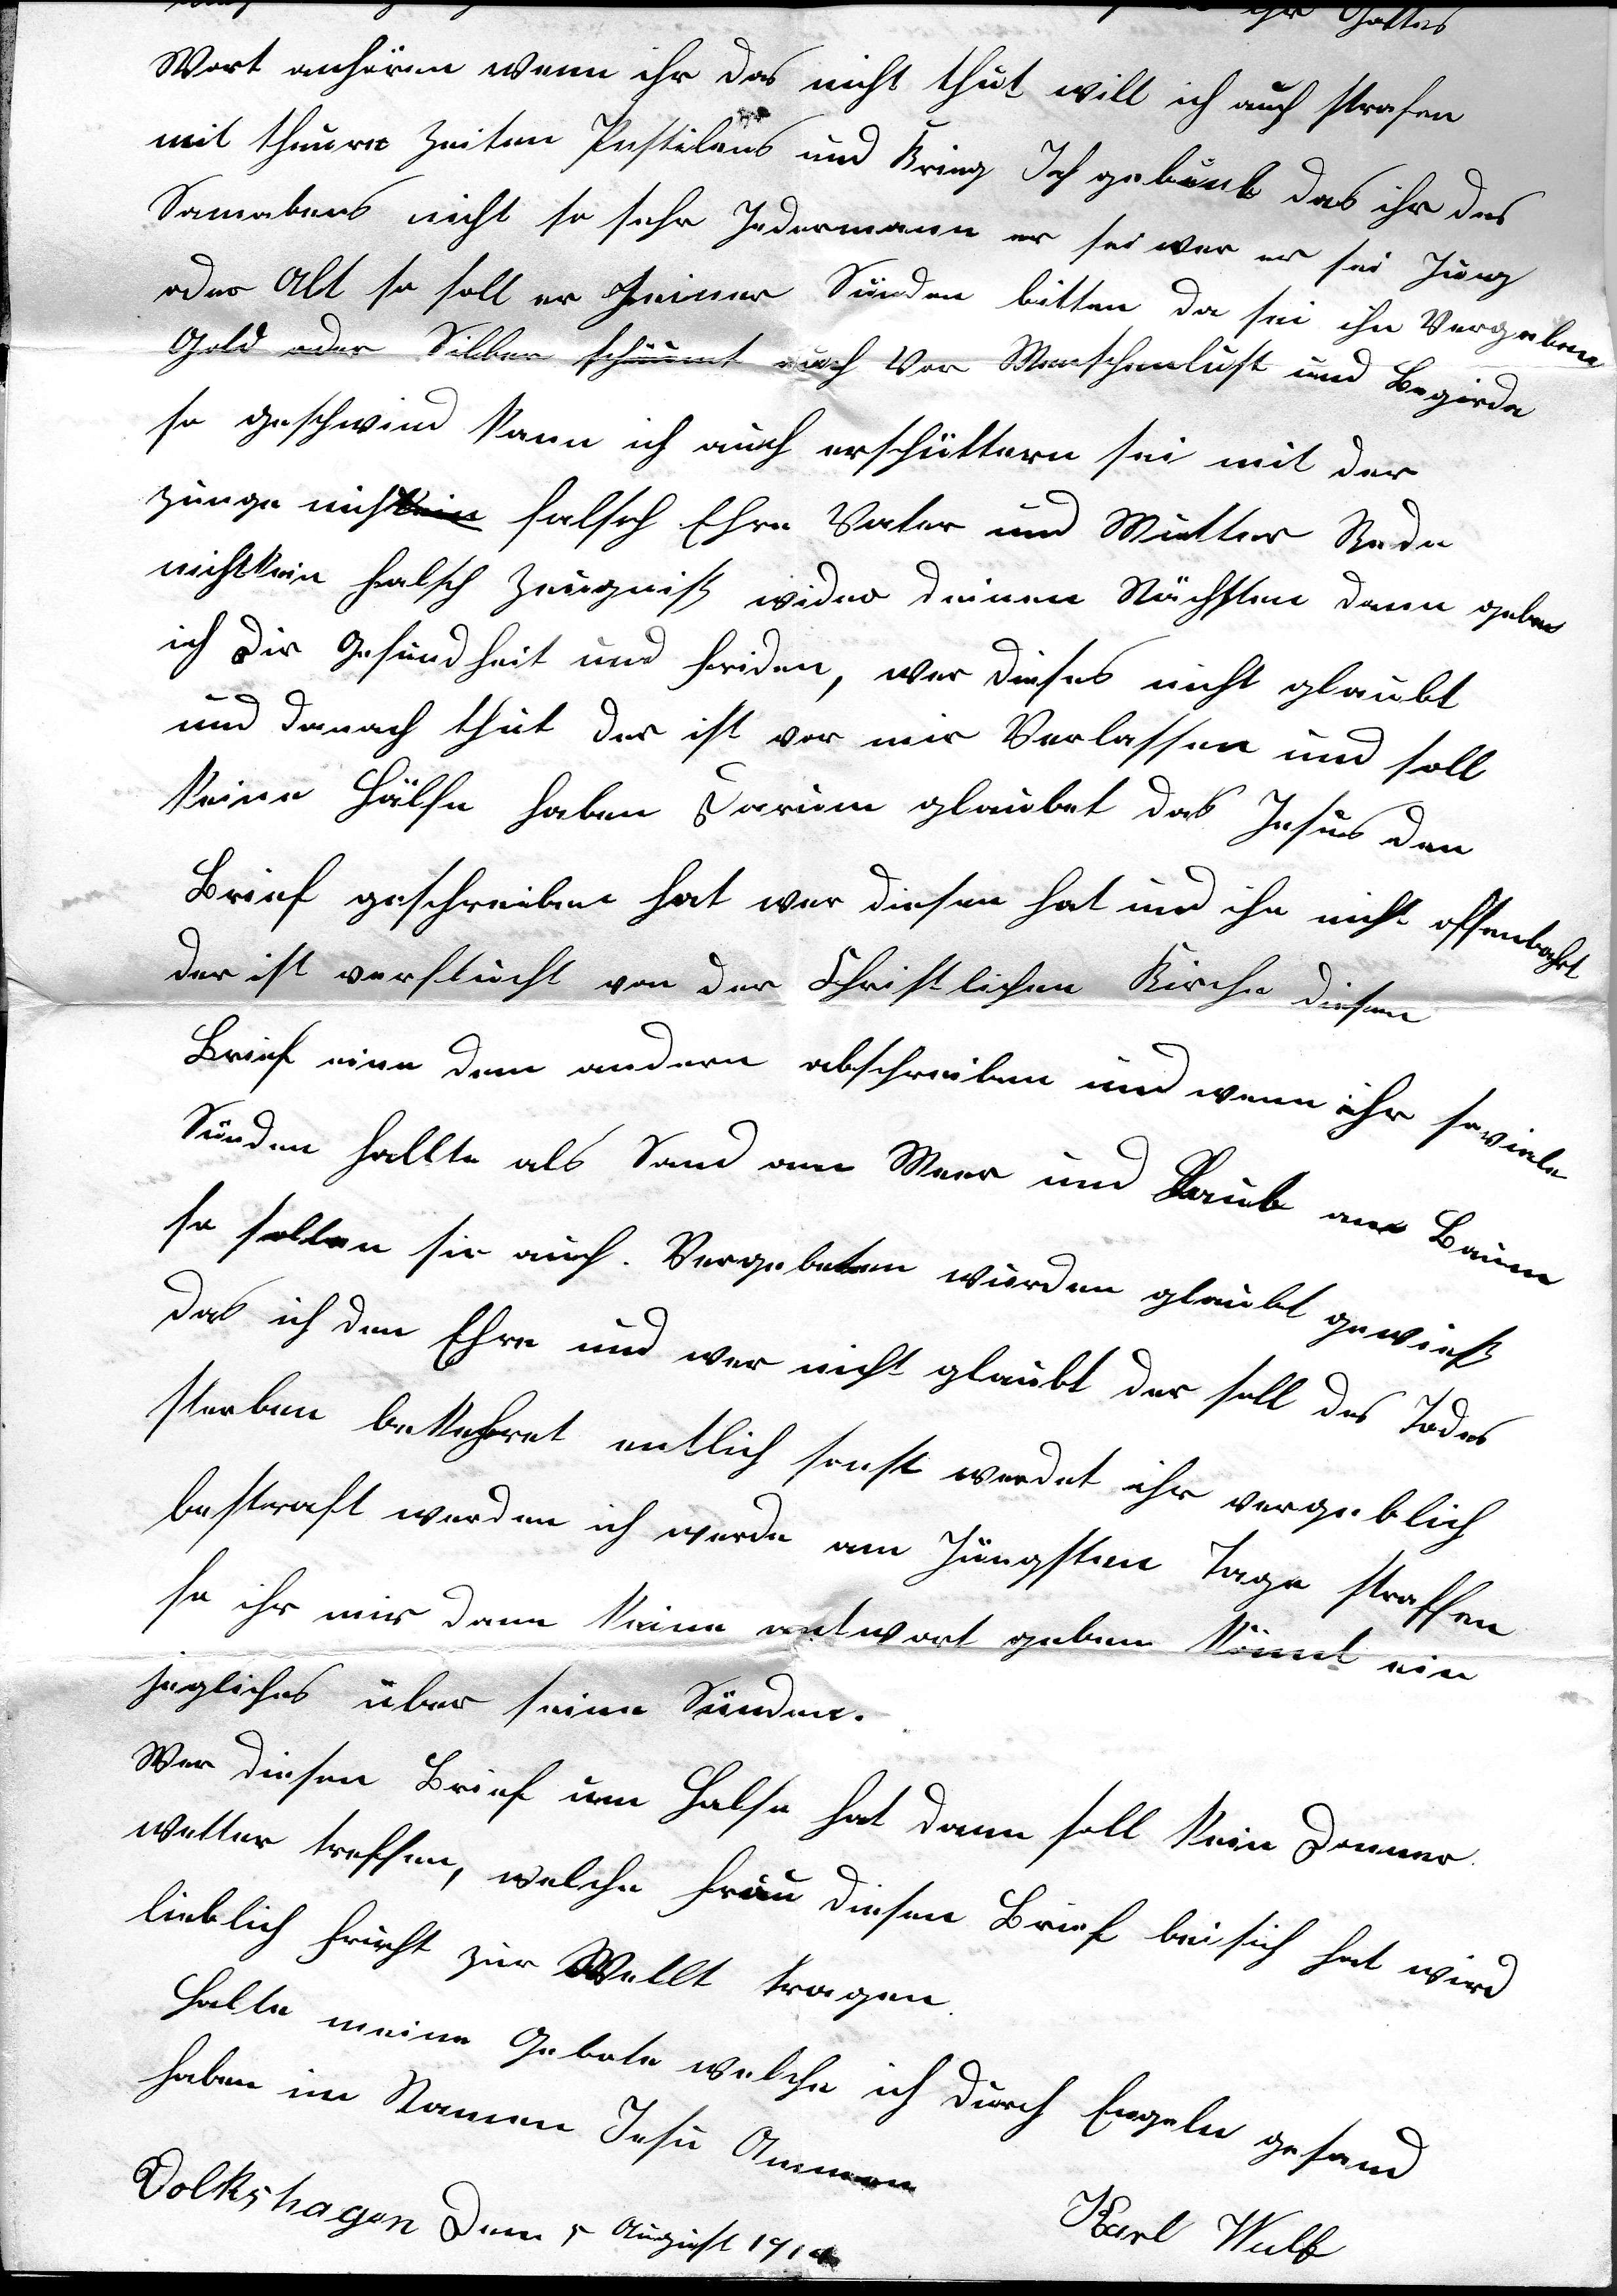 ihr Gottes
Wort anhören wenn ihr das nicht thut will ich auch strafen
mit theure Zeiten Pestilens und Krieg Ich gebeute das ihr des
Sonnabens nicht so sehr Jedermann er sei wer er sei Jung
oder Alt so soll er seiner Sünden bitten da sei ihn Vergeben
Gold oder Silber schäumt auch Vor Menschenlust und Begirde
so geschwind kann ich auch erschüttern sei mit der
Zunge nicht falsch Ehre Vater und Mutter Rede
nicht kein falsch Zeugniß wider deinen Nächsten dann gebe
ich Dir Gesundheit und friden, wer dieses nicht glaubt
und danach thut der ist vor mir Verlassen und soll
keine Hülfe haben Darum glaubet das Jesus den
Brief geschreiben hat wer diesen hat und ihn nicht offenbahrt
der ist verflucht von der Christlichen Kirche diesen
Brief eine dem andern abschreiben und wenn ihr so viele
Sünden hallte als Sand am Meer und Laub am Baum
so sollen sie auch. Vergebeten wurden glaubt gewieß
das ich den Ehre und wer nicht glaubt der soll des Todes
sterben bekehret entlich sonst werdet ihr vergeblich
bestraft werden ich werde am Jüngsten Tage straffen
so ihr mir dann keine antwort geben könnt ein
jegliches über seine Sünden.
Wer diesen Brief um Halse hat dann soll kein Donner
wetter treffen, welche frau diesen Brief bei sich hat wird
lieblich frucht zur Wellt tragen.
Halte meine Gebote welche ich durch Engeln gesand
haben im Namen Jesu Ammen
Volkshagen Dem 5 August 1914
Karl Wulf